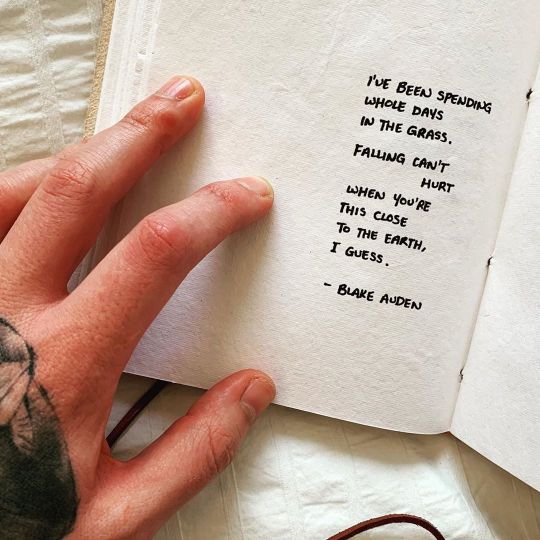 I'VE BEEN SPENDING
WHOLE DAYS
IN THE GRASS.
FALLING CAN'T
HURT
WHEN YOU'RE
THIS CLOSE
TO THE EARTH,
I GUESS.
- BLAKE AUDEN